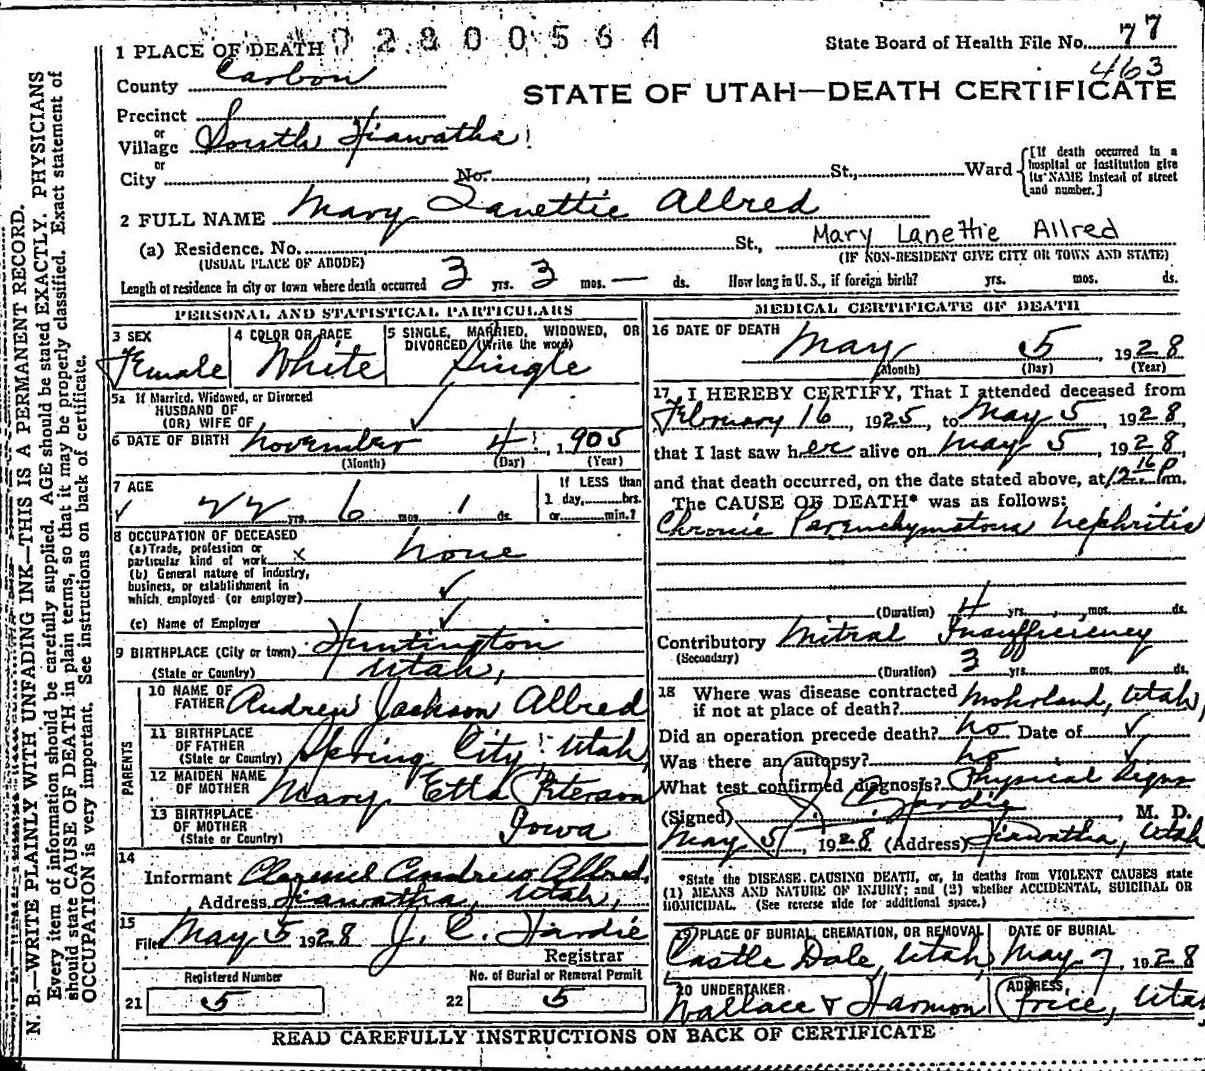 02800564
State Board of Health File No. 77
463
1 PLACE OF DEATH
County Carbon
STATE OF UTAH—DEATH CERTIFICATE
Precinct
or
Village South Hiawatha
or
City No. , St., Ward
[If death occurred in a hospital or institution give its NAME instead of street and number.]
2 FULL NAME Mary Lanettie Allred
(a) Residence. No. St., Mary Lanettie Allred
(USUAL PLACE OF ABODE) (IF NON-RESIDENT GIVE CITY OR TOWN AND STATE)
Length of residence in city or town where death occurred 3 yrs. 3 mos. — ds. How long in U. S., if foreign birth? yrs. mos. ds.
PERSONAL AND STATISTICAL PARTICULARS
3 SEX
Female
4 COLOR OR RACE
White
5 SINGLE, MARRIED, WIDOWED, OR
DIVORCED (Write the word)
Single
5a If Married, Widowed, or Divorced
HUSBAND OF
(OR) WIFE OF
6 DATE OF BIRTH November 4, 1905
(Month) (Day) (Year)
7 AGE
22 yrs. 6 mos. 1 ds.
If LESS than
1 day, hrs.
or min.?
8 OCCUPATION OF DECEASED
(a) Trade, profession or
particular kind of work x None
(b) General nature of industry,
business, or establishment in
which employed (or employer)
(c) Name of Employer
9 BIRTHPLACE (City or town) Huntington
(State or Country) Utah,
PARENTS
10 NAME OF
FATHER Andrew Jackson Allred
11 BIRTHPLACE
OF FATHER
(State or Country) Spring City, Utah
12 MAIDEN NAME
OF MOTHER Mary Etta Peterson
13 BIRTHPLACE
OF MOTHER
(State or Country) Iowa
14
Informant Andrew Allred,
Address Hiawatha, Utah,
15
Filed May 5 1928 J. C. Hardie
Registrar
Registered Number
21 5
No. of Burial or Removal Permit
22 5
MEDICAL CERTIFICATE OF DEATH
16 DATE OF DEATH
May 5, 1928
(Month) (Day) (Year)
17 I HEREBY CERTIFY, That I attended deceased from
February 16, 1925, to May 5, 1928,
that I last saw her alive on May 5, 1928,
and that death occurred, on the date stated above, at 12 16 P m.
The CAUSE OF DEATH* was as follows:
Chronic Parenchymatous Nephritis
(Duration) 4 yrs. mos. ds.
Contributory Mitral Insufficiency
(Secondary)
(Duration) 3 yrs. mos. ds.
18 Where was disease contracted
if not at place of death? Mohrland, Utah,
Did an operation precede death? No Date of
Was there an autopsy? No
What test confirmed diagnosis? Physical Signs
(Signed) Hardie, M. D.
May 5, 1928 (Address) Hiawatha, Utah
*State the DISEASE CAUSING DEATH, or, in deaths from VIOLENT CAUSES state
(1) MEANS AND NATURE OF INJURY; and (2) whether ACCIDENTAL, SUICIDAL OR
HOMICIDAL. (See reverse side for additional space.)
19 PLACE OF BURIAL, CREMATION, OR REMOVAL
Castle Dale, Utah,
DATE OF BURIAL
May 7, 1928
20 UNDERTAKER
Wallace & Harmon
ADDRESS
Price, Utah
READ CAREFULLY INSTRUCTIONS ON BACK OF CERTIFICATE
N. B.—WRITE PLAINLY WITH UNFADING INK—THIS IS A PERMANENT RECORD.
Every item of information should be carefully supplied. AGE should be stated EXACTLY. PHYSICIANS
should state CAUSE OF DEATH in plain terms, so that it may be properly classified. Exact statement of
OCCUPATION is very important. See instructions on back of certificate.